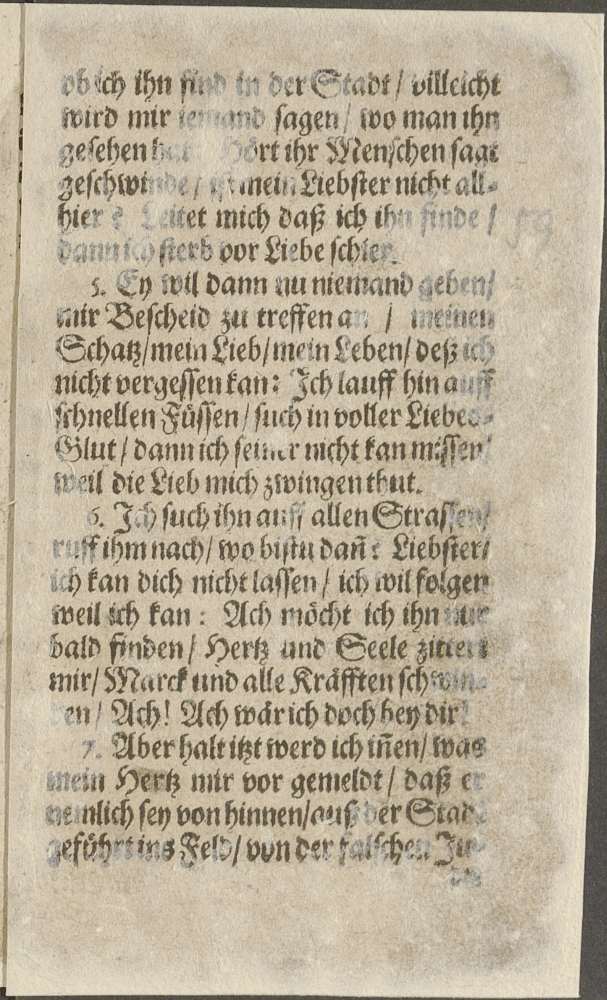 ob ich ihn find in der Stadt / villeicht
wird mir iemand sagen / wo man ihn
gesehen hat: Hört ihr Menschen sagt
geschwinde / ist mein Liebster nicht all-
hier? Leitet mich daß ich ihn finde /
dann ich sterb vor Liebe schier.
5. Ey wil dann nu niemand geben/
mir Bescheid zu treffen an / meinen
Schatz/mein Lieb/mein Leben/ deß ich
nicht vergessen kan: Ich lauff hin auff
schnellen Füssen / such in voller Liebes-
Glut / dann ich seiner nicht kan missen/
weil die Lieb mich zwingen thut.
6. Ich such ihn auff allen Strassen/
ruff ihm nach/ wo bistu dañ? Liebster/
ich kan dich nicht lassen / ich wil folgen
weil ich kan: Ach möcht ich ihn nur
bald finden / Hertz und Seele zittert
mir/ Marck und alle Kräfften schwin-
en / Ach! Ach wär ich doch bey dir!
7. Aber halt itzt werd ich iñen/ was
mein Hertz mir vor gemeldt / daß er
nemlich sey von hinnen/auß der Stadt
geführt ins Feld/ von der falschen Ju-